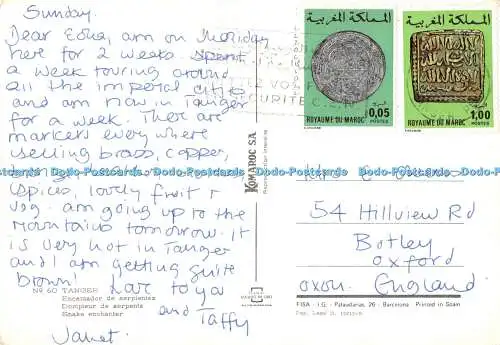 Sunday.
Dear Edna, am on Moliday
here for 2 weeks. Spent
a week touring around
all the imperial cities
and am now in Tanger
for a week. There are
markets everywhere
selling brass, copper,
spices, lovely fruit &
veg. am going up to the
mountains tomorrow. It
is very hot in Tanger
and I am getting quite
brown! Love to you
and Taffy
Janet.
Nº 60 TANGER
Encantador de serpientes
Dompteur de serpents
Snake enchanter
KOMAROC SA
المملكة المغربية
0,05
ROYAUME DU MAROC
POSTES
المملكة المغربية
1,00
ROYAUME DU MAROC
POSTES
54 Hillview Rd
Botley
Oxford
Oxon. England
FISA - I.G. - Palaudarias, 26 - Barcelona Printed in Spain
Dodo-Postcards Dodo-Postcards Dodo-Postcards Dodo-Postcards